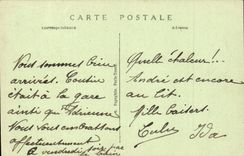 CARTE POSTALE
Correspondance
Adresse
Vous sommes bien
arrivés. Toutine
était à la gare
ainsi qu'Adrienne
Nous vous embrassons
affectueusement
Ce vendredi soir
Quelle chaleur!...
André est encore
au lit.
Mille baisers.
Lulu Ida